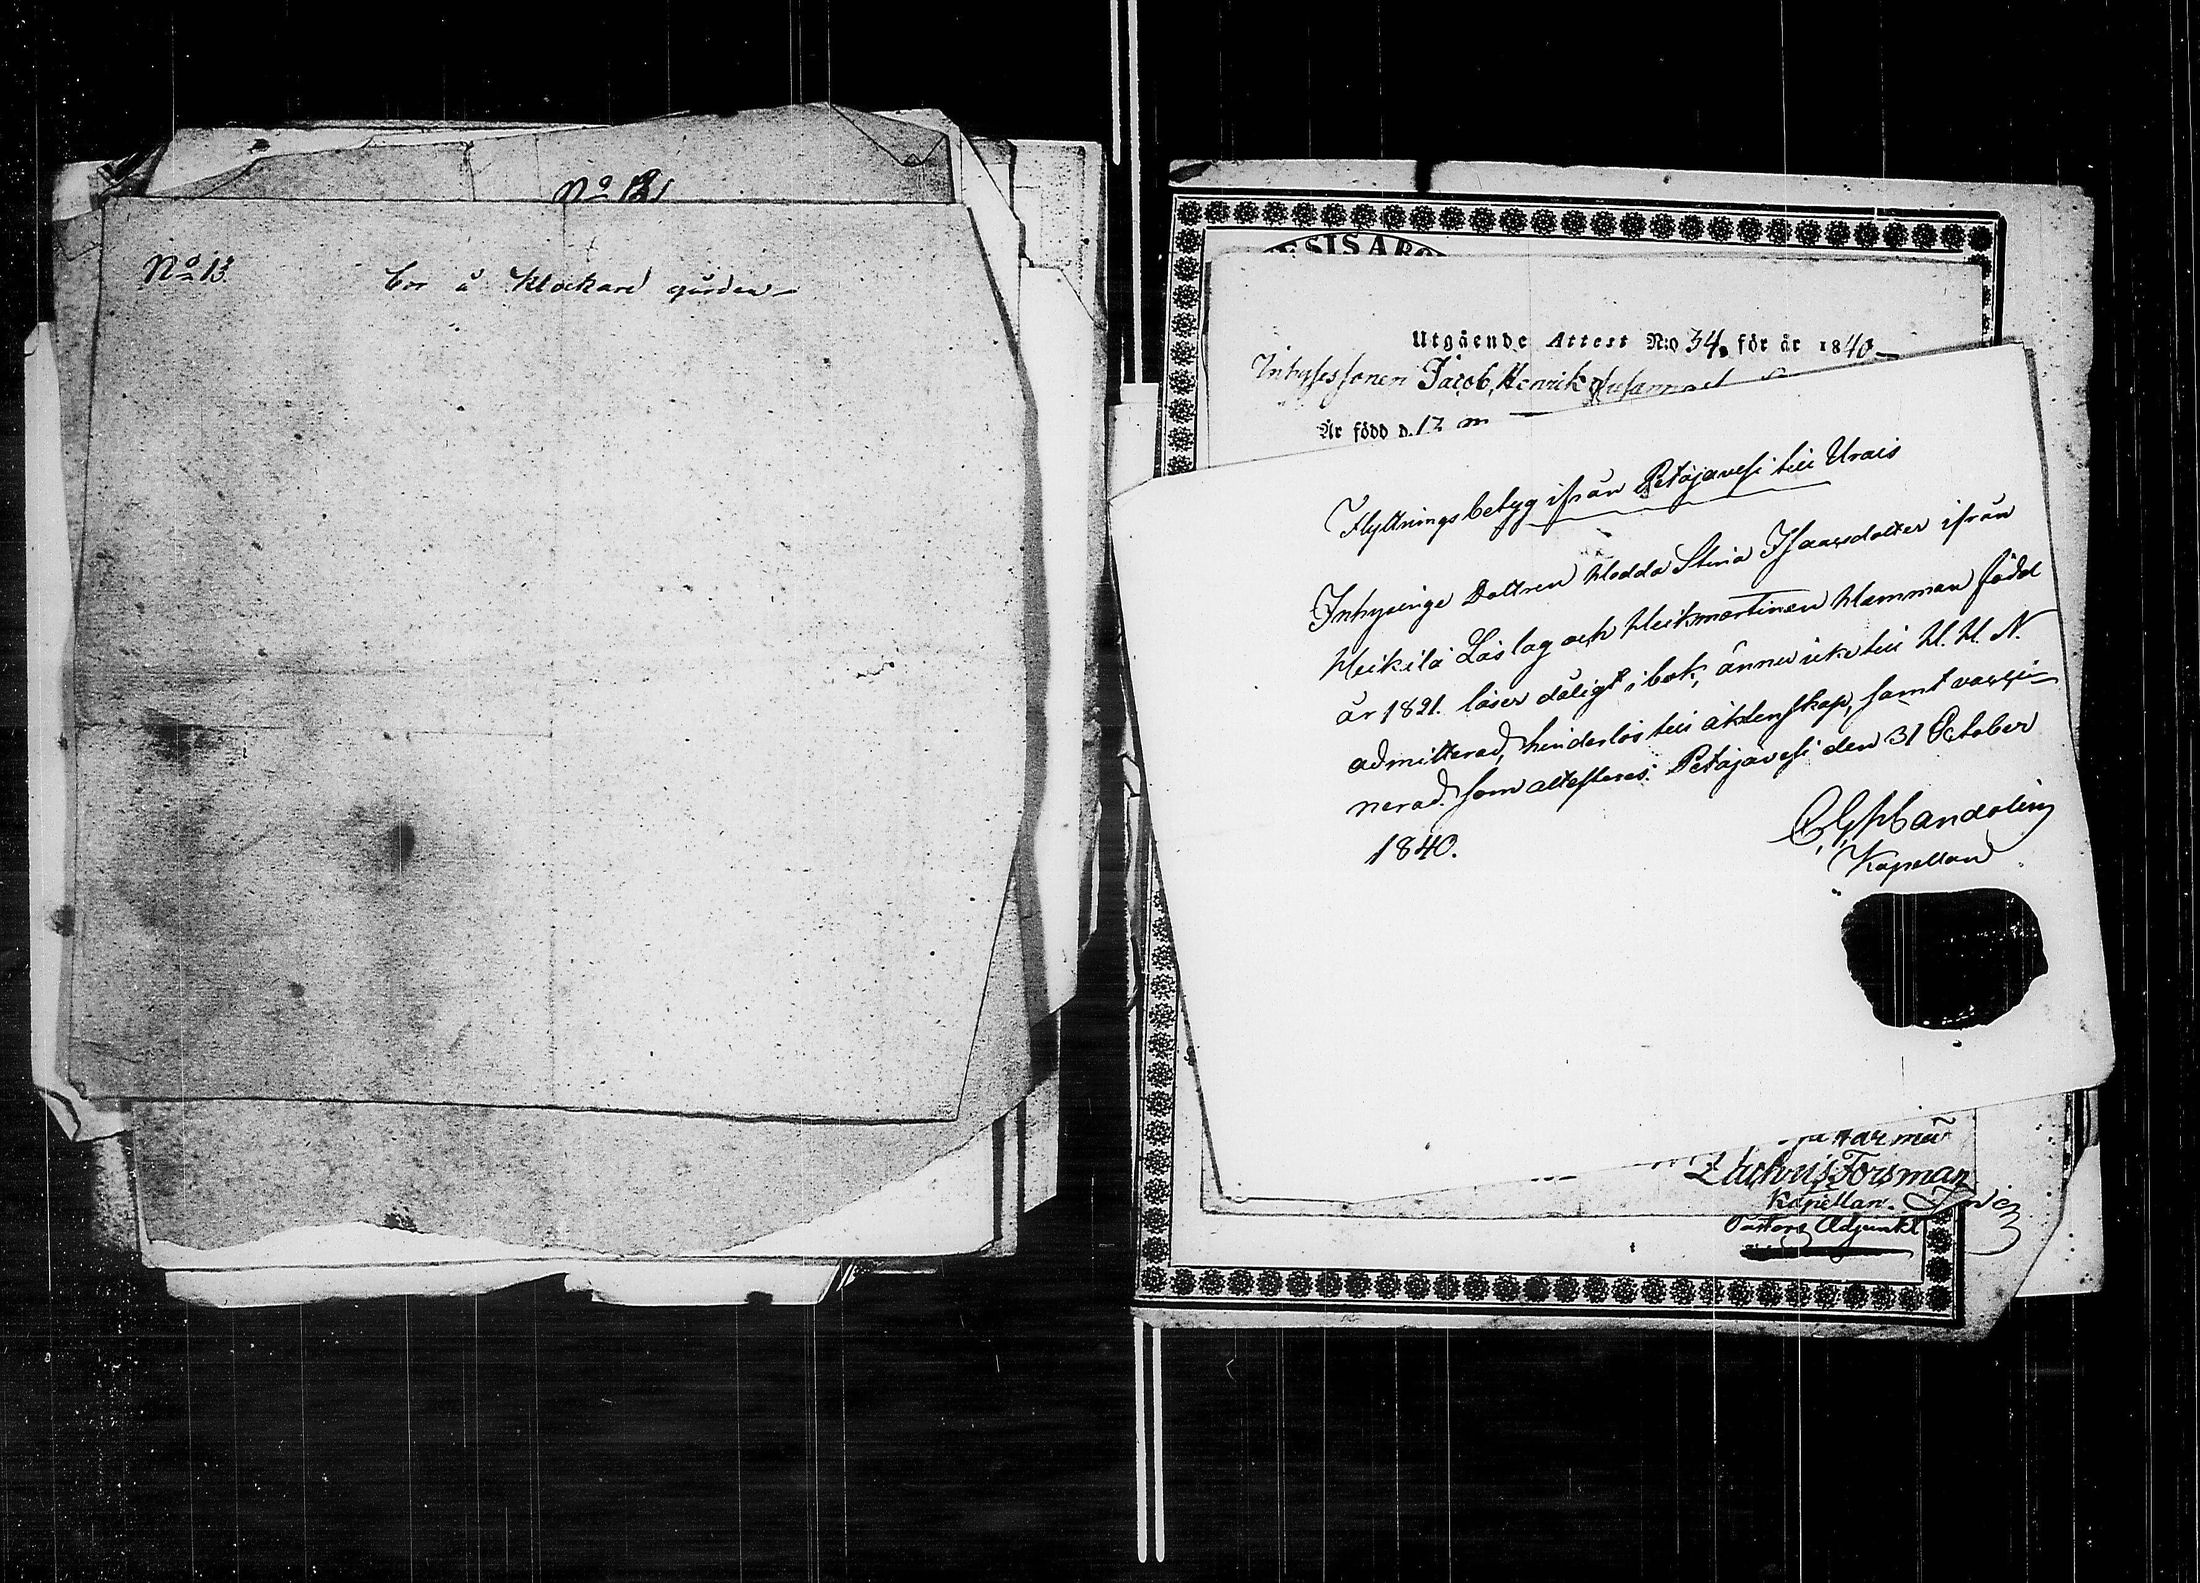 No 131
No 13.
bor å Klockare gården
ESIS ABO
Utgående Attest N:o 34. för år 1840
Inhysessonen Jacob, Henrik
Är född d. 12
Flyttningsbetyg ifrån Petäjävesi till Urais
Inhysinge Dottren Hedda Stina Isaacsdotter ifrån
Heikilä Läslag och Heikmartinen Hemman född
år 1821. läser dåligt i bok, ännu icke till H. H. N.
admitterad, hinderlös till äktenskap, samt vacci-
nerad. som attesteras. Petäjävesi den 31 October
1840.
Kapellan
Forsman
Kapellan.
Pastors Adjunkt